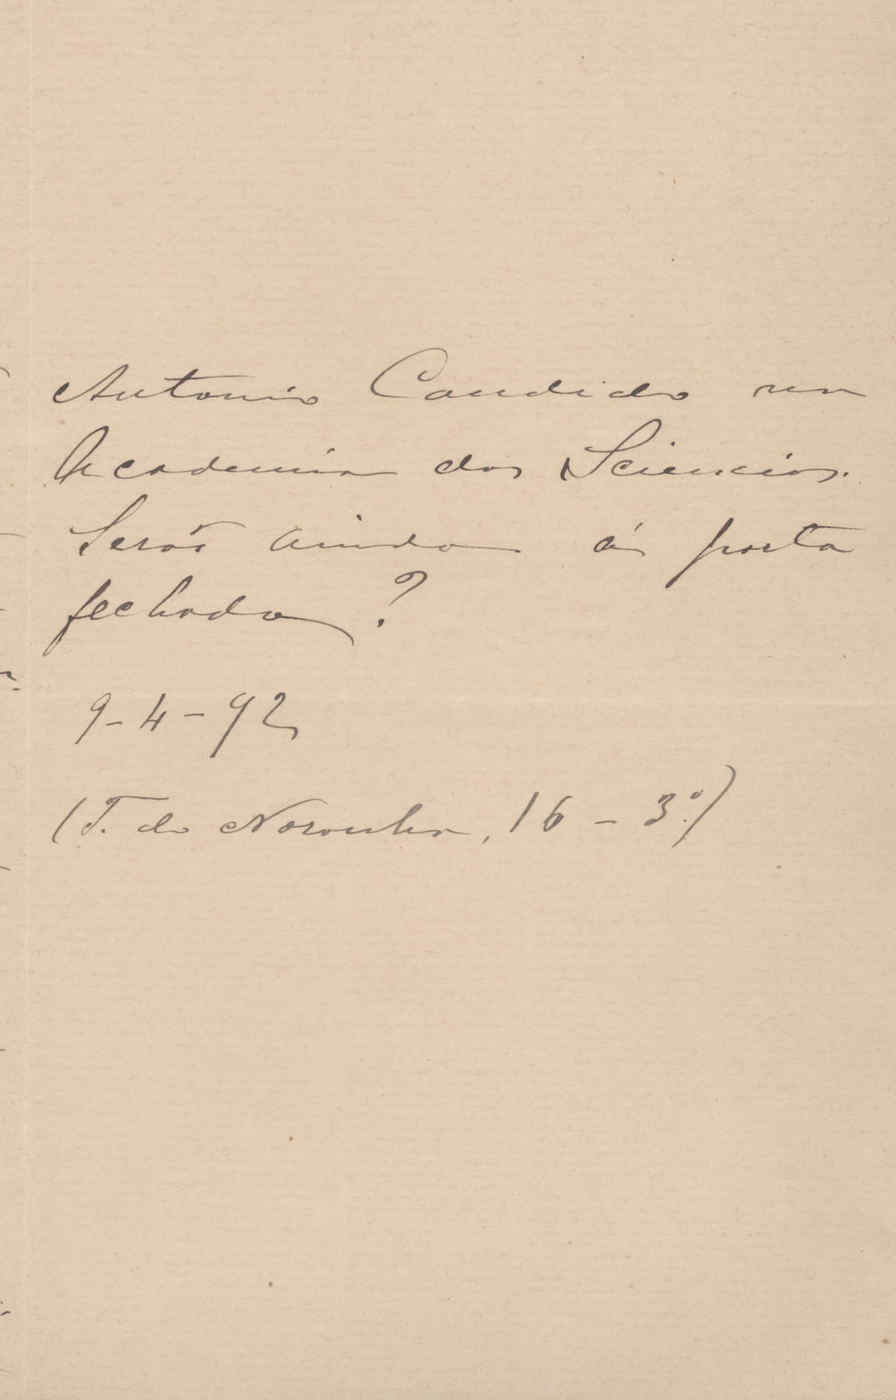 Antonio Candido na
Academia das Sciencias.
Será ainda á porta
fechada?
9-4-92
(T. do Noronha, 16 - 3.º)